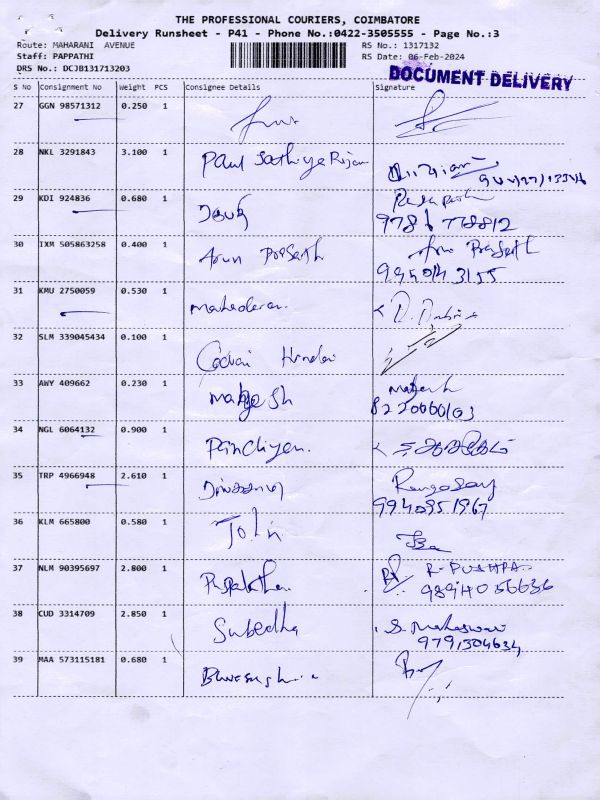 THE PROFESSIONAL COURIERS, COIMBATORE
Delivery Runsheet - P41 - Phone No.:0422-3505555 - Page No.:3
Route: MAHARANI AVENUE RS No.: 1317132
Staff: PAPPATHI RS Date: 06-Feb-2024
DRS No.: DCJB131713203
DOCUMENT DELIVERY
S No Consignment No Weight PCS Consignee Details Signature
27 GGN 98571312 0.250 1
28 NKL 3291843 3.100 1 Paul Sathiya Rajan
29 KDI 924836 0.680 1
9786778812
30 IXM 505863258 0.400 1 Arun Prasath Arun Prasath
9950143155
31 KMU 2750059 0.530 1 Mahadevan.
32 SLM 339045434 0.100 1
33 AWY 409662 0.230 1 Mahesh Mahesh
8220060103
34 NGL 6064132 0.900 1 Pandiyan.
35 TRP 4966948 2.610 1
9940951967
36 KLM 665800 0.580 1 John
37 NLM 90395697 2.800 1 R. PUSHPA
9894056636
38 CUD 3314709 2.850 1 Subedha S. Maheswari
9791304634
39 MAA 573115181 0.680 1